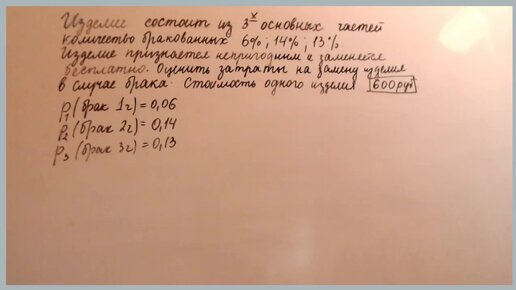 Изделие состоит из 3х основных частей
количество бракованных 6%; 14%; 13%
Изделие признается непригодным и заменяется
бесплатно. Оценить затраты на замену изделия
в случае брака. Стоимость одного изделия 600руб
p₁ (брак 1г) = 0,06
p₂ (брак 2г) = 0,14
p₃ (брак 3г) = 0,13